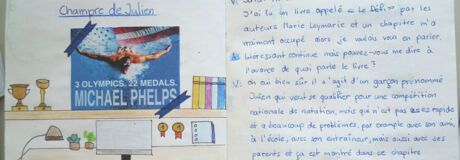 Champre de Julien
3 OLYMPICS. 22 MEDALS.
MICHAEL PHELPS
J'ai lu un livre appelé «Le Défi» par les
auteurs Marie Leymarie et un chapitre m'a
vraiment occupé alors je voulais vous en parler.
Intéressant continue mais pouvez-vous me dire à
l'avance de quoi parle le livre?
V: oh oui bien sûr il s'agit d'un garçon prénommé
Julien qui veut se qualifier pour une compétition
nationale de natation, mais qui n'est pas assez rapide
et a beaucoup de problèmes, par exemple avec son ami,
à l'école, avec son entraîneur, mais aussi avec ses
parents et ça est montré dans ce chapitre